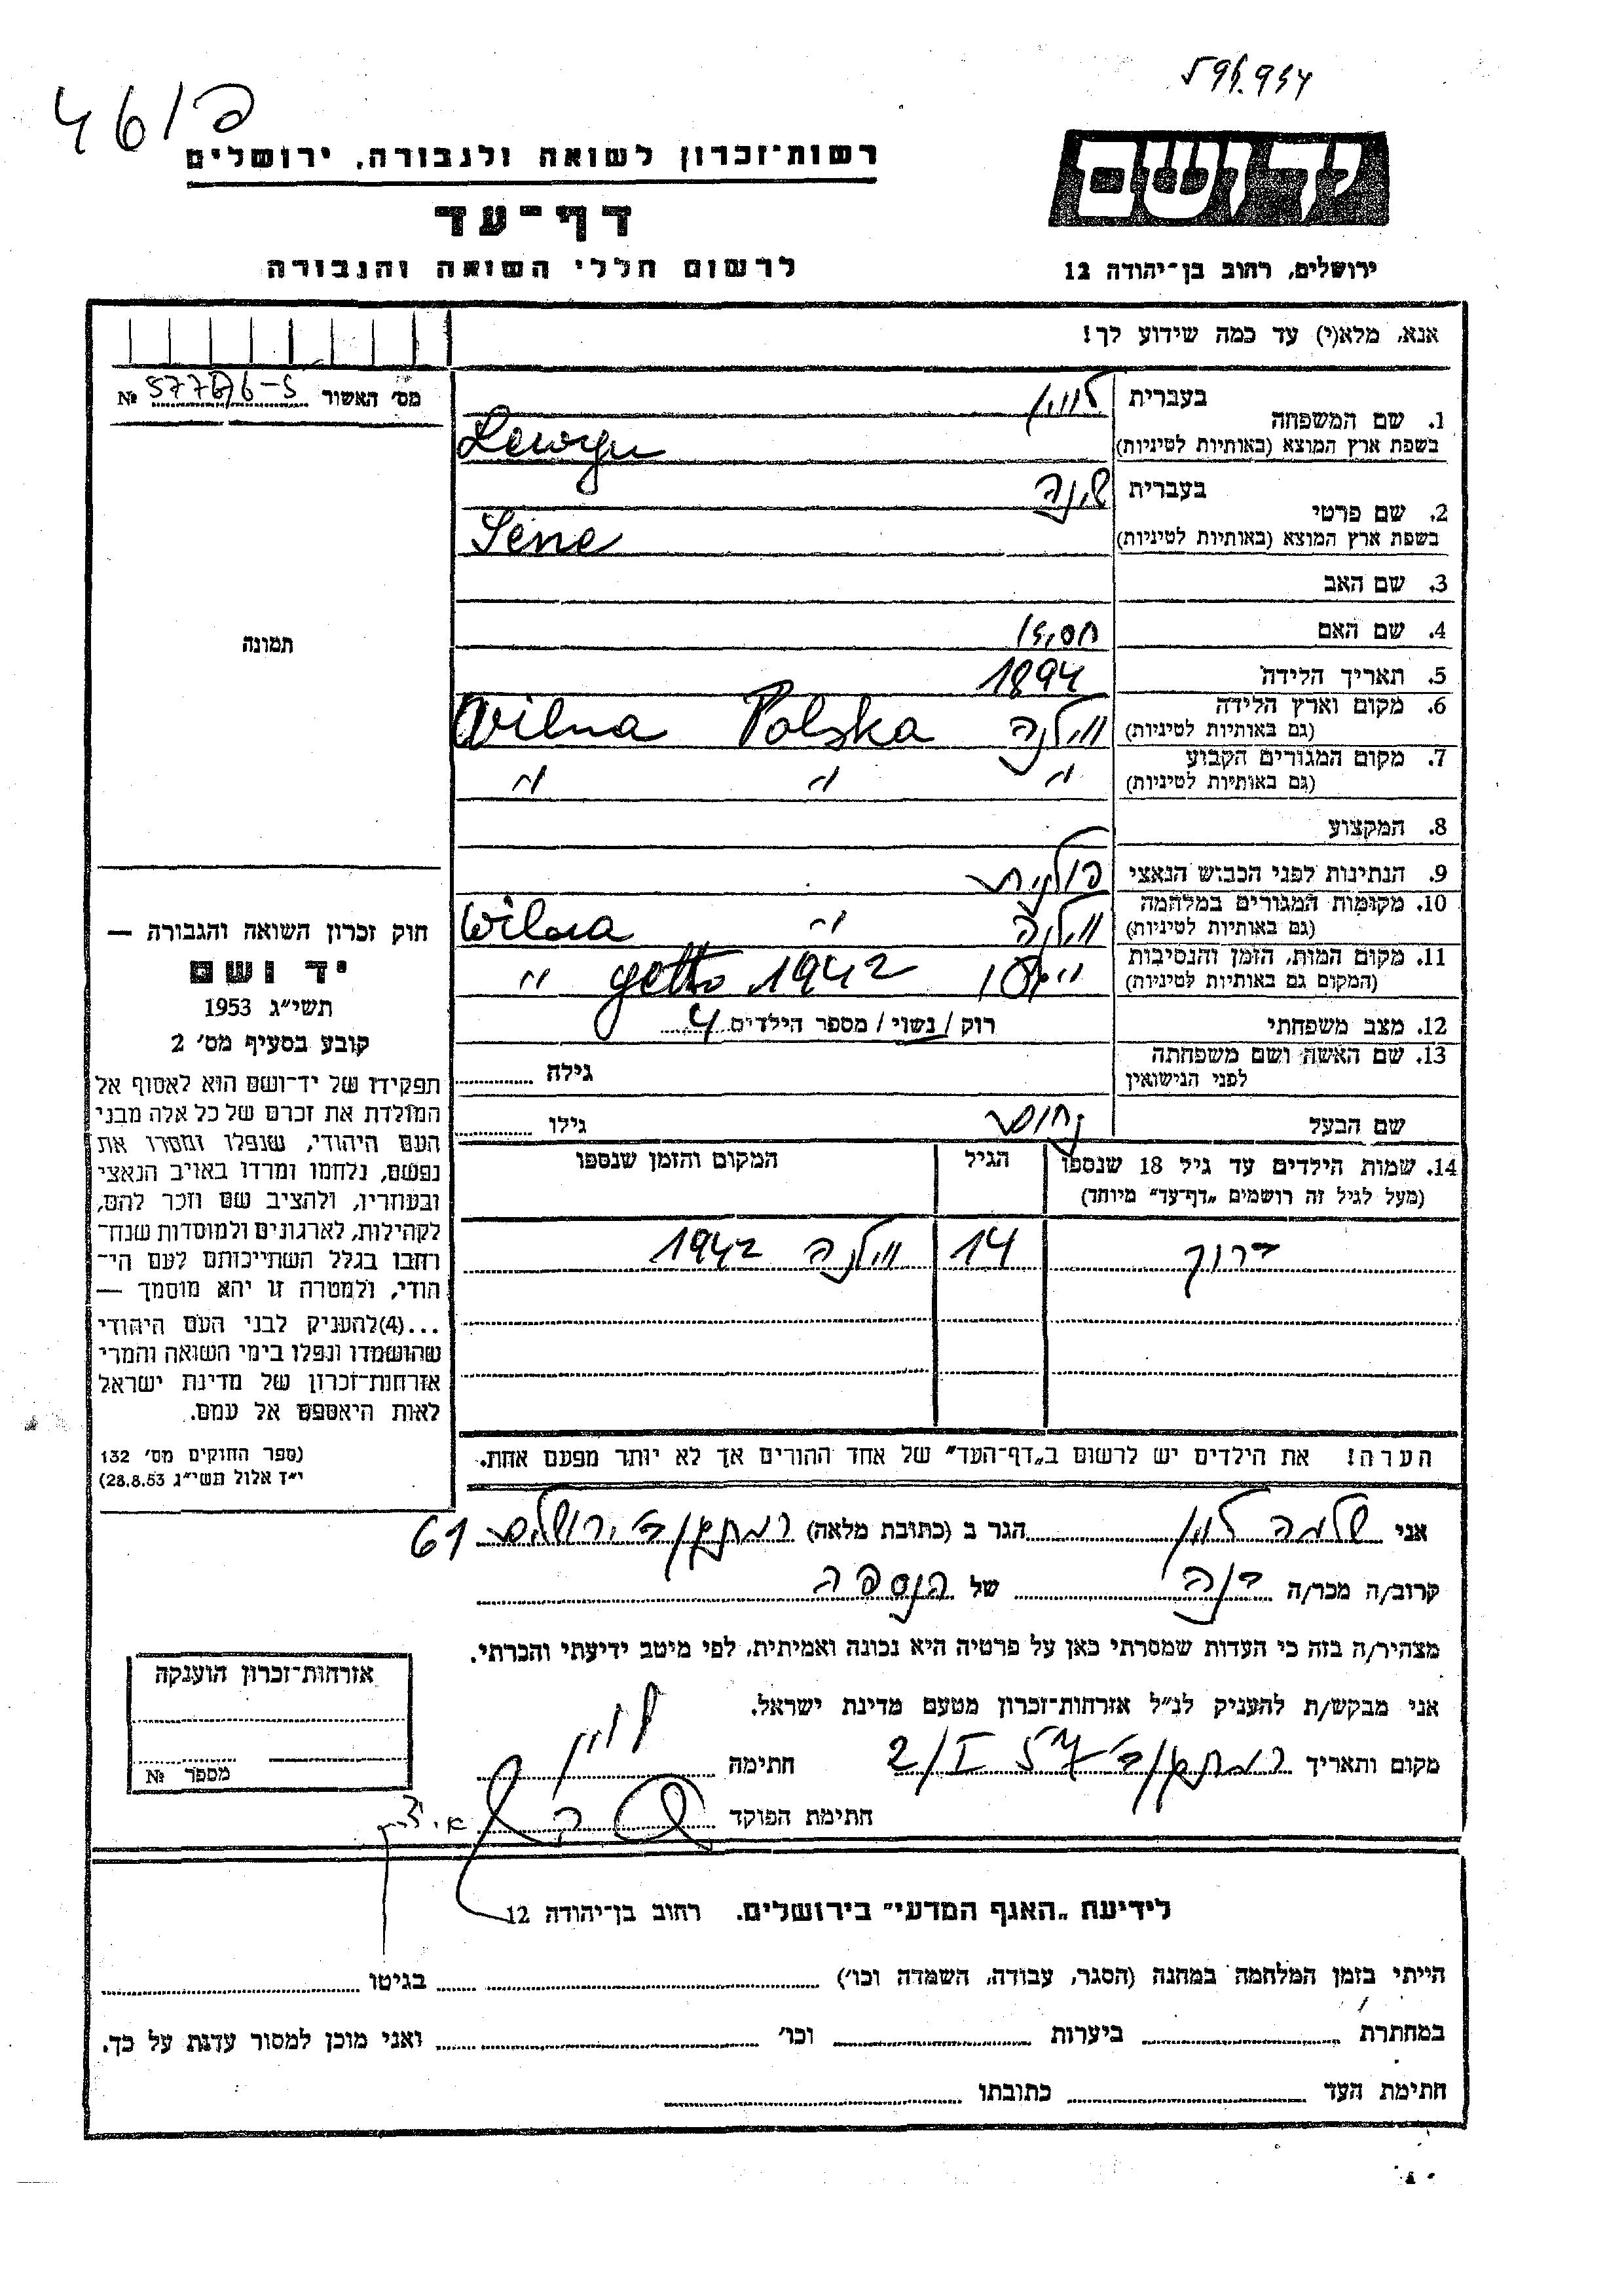 46/פ
רשות־זכרון לשואה ולגבורה, ירושלים
דף־עד
לרשום חללי השואה והגבורה
יד ושם
ירושלים, רחוב בן־יהודה 12
אנא, מלא(י) עד כמה שידוע לך!
מס' האשור №
1. שם המשפחה בעברית לוין
בשפת ארץ המוצא (באותיות לטיניות) Lewyn
2. שם פרטי בעברית שינה
בשפת ארץ המוצא (באותיות לטיניות) Sene
3. שם האב
4. שם האם
5. תאריך הלידה 1894
6. מקום וארץ הלידה (גם באותיות לטיניות) וילנה Polska Wilna
7. מקום המגורים הקבוע (גם באותיות לטיניות) " " "
8. המקצוע
9. הנתינות לפני הכבוש הנאצי פולנית
10. מקומות המגורים במלחמה (גם באותיות לטיניות) וילנה " Wilna
11. מקום המות, הזמן והנסיבות (המקום גם באותיות לטיניות) getto 1942 "
12. מצב משפחתי רוק / נשוי / מספר הילדים 4
13. שם האשה ושם משפחתה לפני הנישואין גילה
שם הבעל גילו
14. שמות הילדים עד גיל 18 שנספו
(מעל לגיל זה רושמים „דף־עד" מיוחד)
הגיל
המקום והזמן שנספו
14 וילנה 1942
הערה! את הילדים יש לרשום ב„דף־העד" של אחד ההורים אך לא יותר מפעם אחת.
תמונה
חוק זכרון השואה והגבורה —
יד ושם
תשי"ג 1953
קובע בסעיף מס' 2
תפקידו של יד־ושם הוא לאסוף אל
המולדת את זכרם של כל אלה מבני
העם היהודי, שנפלו ומסרו את
נפשם, נלחמו ומרדו באויב הנאצי
ובעוזריו, ולהציב שם וזכר להם,
לקהילות, לארגונים ולמוסדות שנח־
רבו בגלל השתייכותם לעם הי־
הודי, ולמטרה זו יהא מוסמך —
...(4)להעניק לבני העם היהודי
שהושמדו ונפלו בימי השואה והמרי
אזרחות־זכרון של מדינת ישראל
לאות היאספם אל עמם.
(ספר החוקים מס' 132
י"ז אלול תשי"ג 28.8.53)
אני שלמה לוין הגר ב (כתובת מלאה) ירושלים 61
קרוב/ה מכר/ה של הנספה
מצהיר/ה בזה כי העדות שמסרתי כאן על פרטיה היא נכונה ואמיתית, לפי מיטב ידיעתי והכרתי.
אני מבקש/ת להעניק לנ"ל אזרחות־זכרון מטעם מדינת ישראל.
מקום ותאריך 2/I 57 חתימה לוין
חתימת הפוקד
אזרחות־זכרון הוענקה
מספר №
לידיעת „האגף המדעי" בירושלים. רחוב בן־יהודה 12
הייתי בזמן המלחמה במחנה (הסגר, עבודה, השמדה וכו') בגיטו
במחתרת ביערות וכו' ואני מוכן למסור עדות על כך.
חתימת העד כתובתו